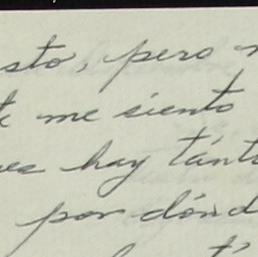 sto, pero
me siento
hay tánt
por dónd